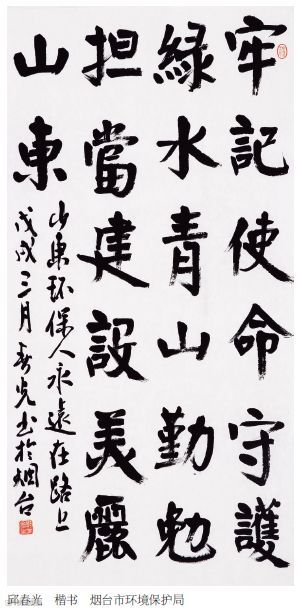 牢記使命守護
綠水青山勤勉
担當建設美麗
山東
山東环保人永遠在路上
戊戌三月春光书於烟台
邱春光　楷书　烟台市环境保护局